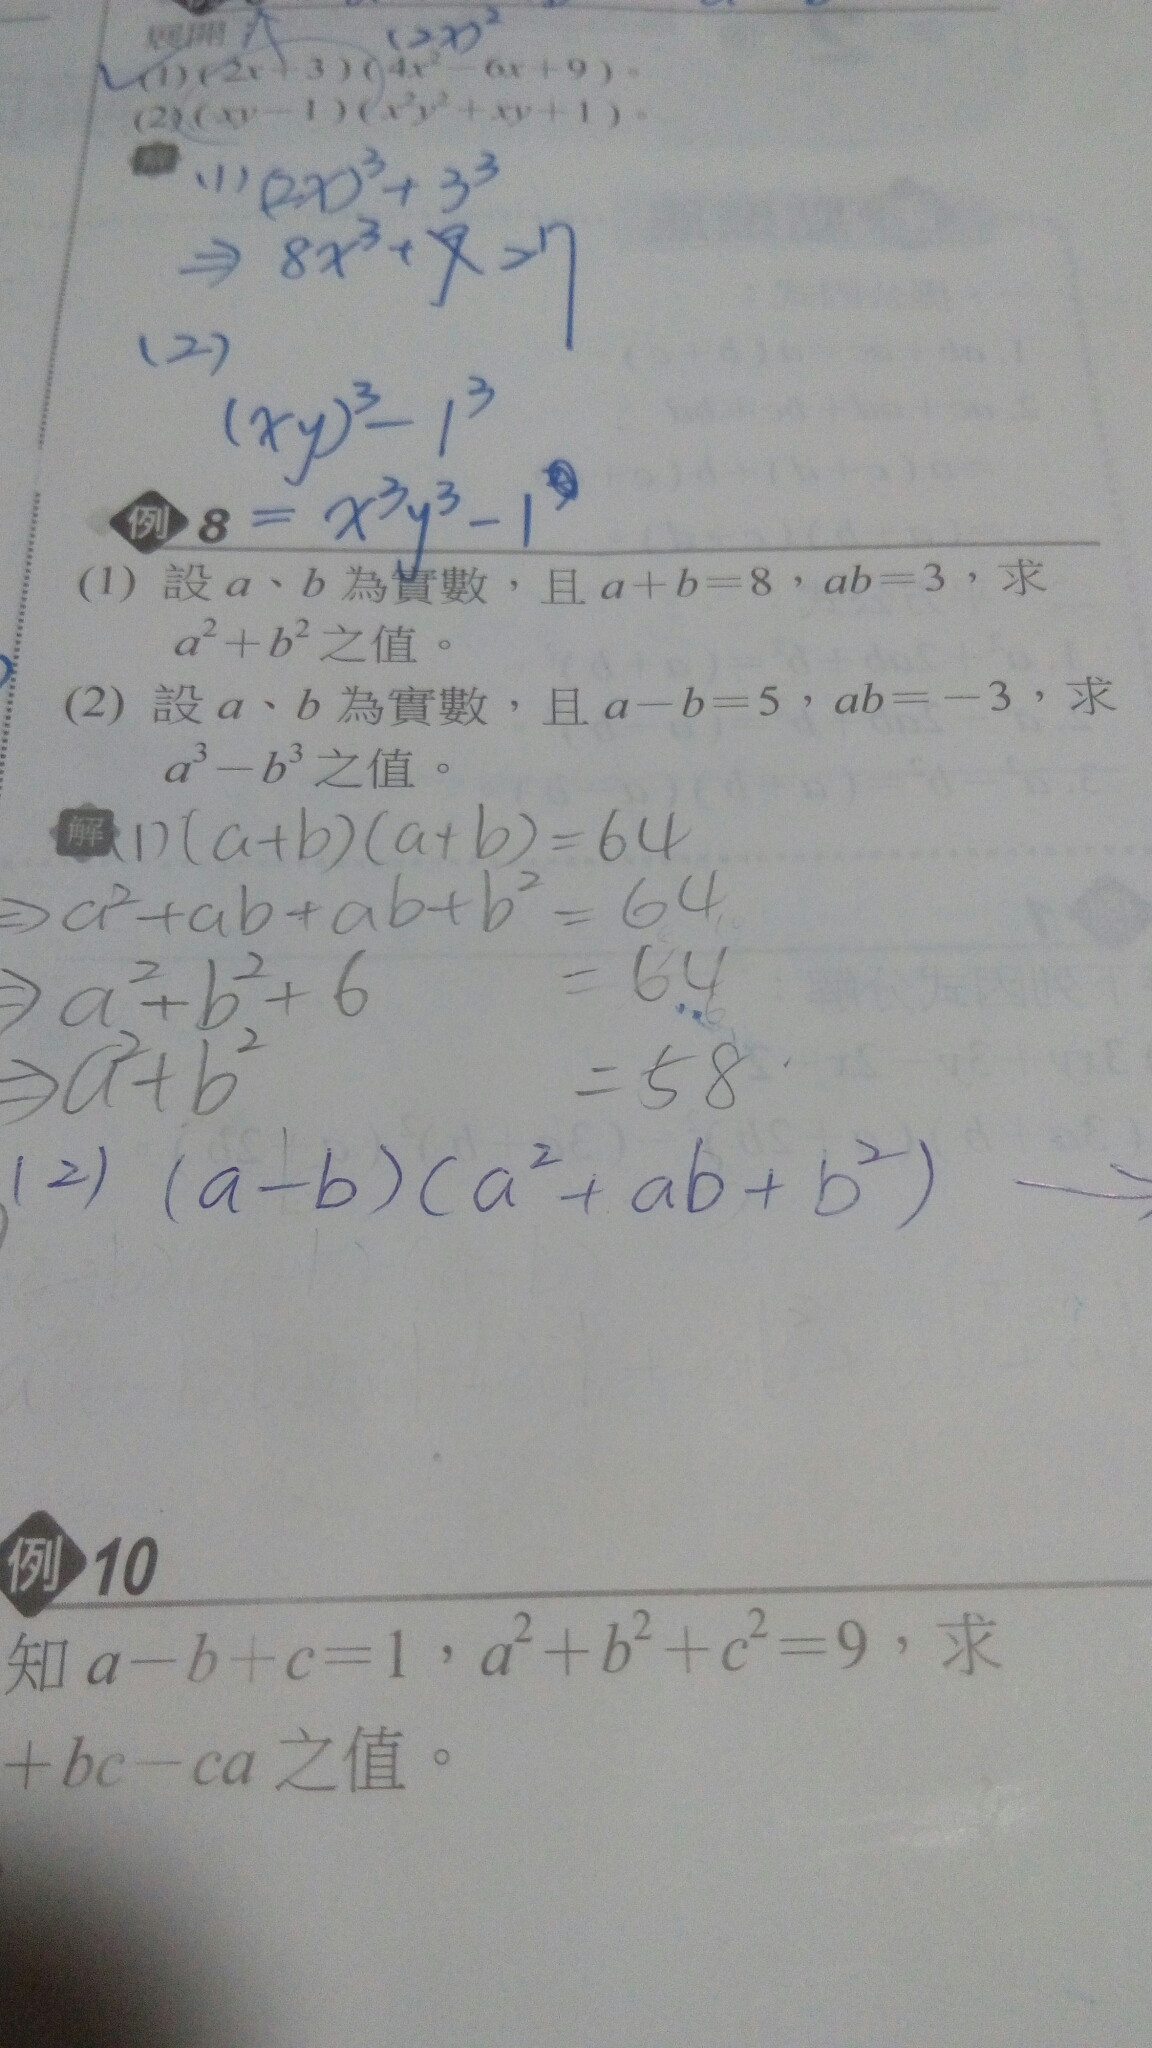 展開
(2x)²
(1) (2x+3)(4x²−6x+9)。
(2) (xy−1)(x²y²+xy+1)。
解 (1) (2x)³+3³
⇒ 8x³+
(2)
(xy)³−1³
例 8 = x³y³−1
(1) 設 a、b 為實數，且 a+b=8，ab=3，求
a²+b² 之值。
(2) 設 a、b 為實數，且 a−b=5，ab=−3，求
a³−b³ 之值。
解 (1) (a+b)(a+b)=64
⇒a²+ab+ab+b² = 64
⇒a²+b²+6 = 64
⇒a²+b² = 58
(2) (a−b)(a²+ab+b²) →
例 10
知 a−b+c=1，a²+b²+c²=9，求
+bc−ca 之值。